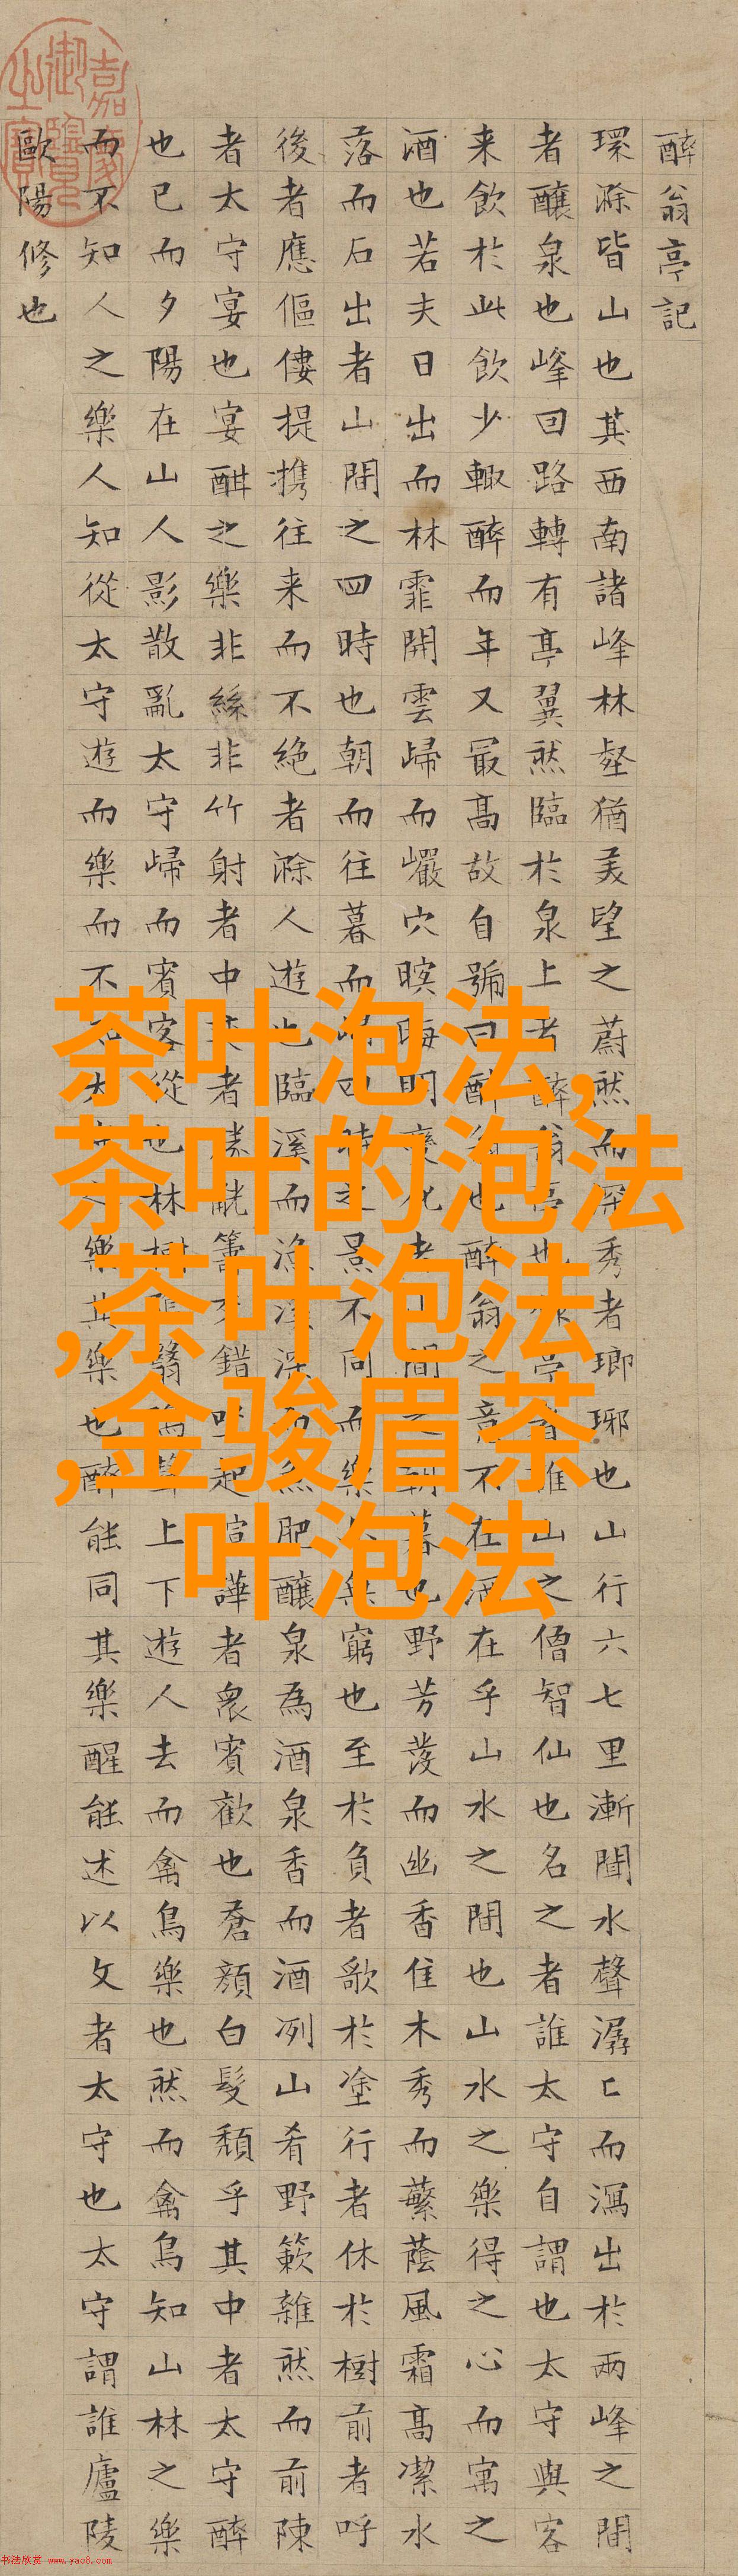 醉翁亭記
環滁皆山也其西南諸峰林壑猶美望之蔚然而深秀者瑯琊也山行六七里漸聞水聲潺〻而瀉出於兩峰之間
者釀泉也峰回路轉有亭翼然臨於泉上者醉翁亭也作亭者誰山之僧智仙也名之者誰太守自謂也太守與客
来飲於此飲少輒醉而年又最高故自號曰醉翁也醉翁之意不在酒在乎山水之間也山水之樂得之心而寓之
酒也若夫日出而林霏開雲歸而巖穴暝晦明變化者山間之朝暮也野芳發而幽香佳木秀而蘩蔭風霜高潔水
落而石出者山間之四時也朝而往暮而歸四時之景不同而樂亦無窮也至於負者歌於塗行者休於樹前者呼
後者應傴僂提携往来而不絶者滁人遊也臨溪而漁溪深而魚肥釀泉為酒泉香而酒冽山肴野蔌雜然而前陳
者太守宴也宴酣之樂非絲非竹射者中奕者勝觥籌交錯坐起諠譁者衆賓歡也蒼顔白髮頽乎其中者太守醉
也已而夕陽在山人影散亂太守歸而賓客從也林樹陰翳鳴聲上下遊人去而禽鳥樂也然而禽鳥知山林之樂
而不知人之樂人知從太守遊而樂而不知太守之樂其樂也醉能同其樂醒能述以文者太守也太守謂誰廬陵
歐陽修也
嘉慶御覽之寶
茶叶泡法,
茶叶的泡法
,茶叶泡法
,金骏眉茶
叶泡法
书法欣赏 www.yac8.com